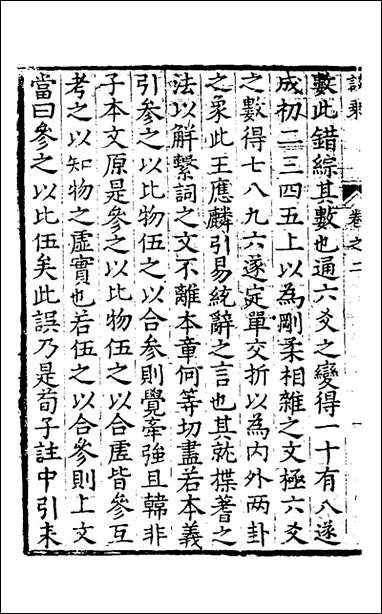 卷之二
數此錯綜其數也通六爻之變得一十有八遂
成初二三四五上以為剛柔相雜之文極六爻
之數得七八九六遂定單交折以為内外兩卦
之象此王應麟引易統辭之言也其就揲蓍之
法以解繫詞之文不離本章何等切盡若本義
引參之以比物伍之以合參則覺牽強且韓非
子本文原是參之以比物伍之以合虛皆參互
考之以知物之虛實也若伍之以合參則上文
當曰參之以比伍矣此誤乃是荀子註中引未